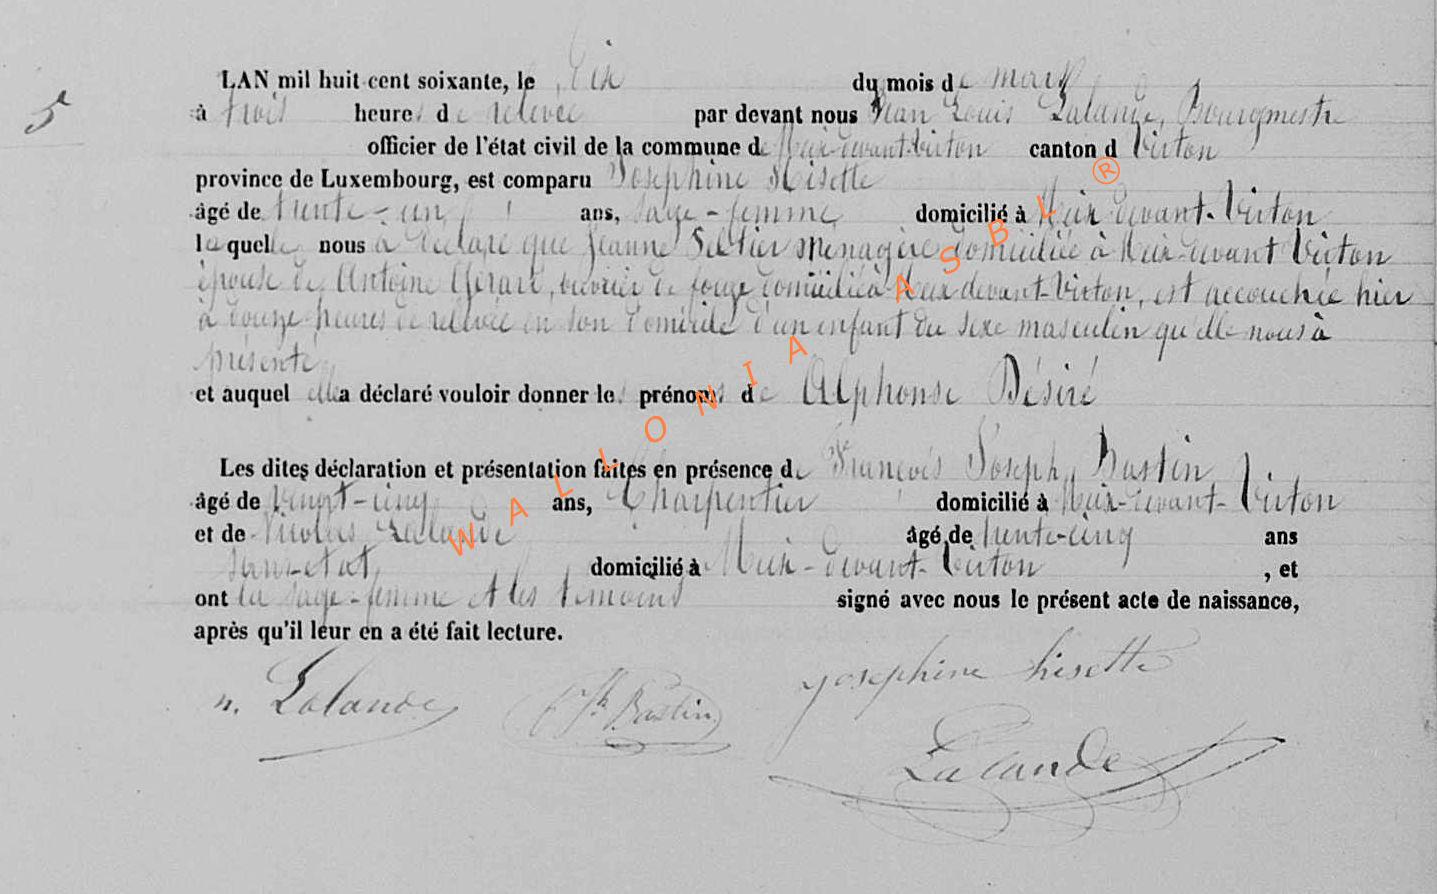 5
LAN mil huit cent soixante, le dix du mois de mars
à trois heures de relevée par devant nous Jean Louis Lalande, Bourgmestre
officier de l'état civil de la commune de Meix-devant-Virton canton d Virton
province de Luxembourg, est comparu Josephine Hisette
âgé de trente-un ans, sage-femme domicilié à Meix-devant-Virton
laquelle nous à déclaré que Jeanne ménagère domiciliée à Meix-devant Virton
épouse de Antoine Gérard, ouvrier de forge domicilié à Meix devant-Virton, est accouchée hier
à heures de relevée en son domicile d'un enfant du sexe masculin qu'elle nous à
présenté
et auquel elle a déclaré vouloir donner les prénoms de Alphonse Désiré
Les dites déclaration et présentation faites en présence de François Joseph Bastin
âgé de vingt-cinq ans, Charpentier domicilié à Meix-devant-Virton
et de Nicolas Lalande âgé de trente-cinq ans
sans-état, domicilié à Meix-devant-Virton , et
ont la sage-femme et les témoins signé avec nous le présent acte de naissance,
après qu'il leur en a été fait lecture.
n. Lalande Bastin josephine hisette
Lalande
WALLONIA ASBL ®